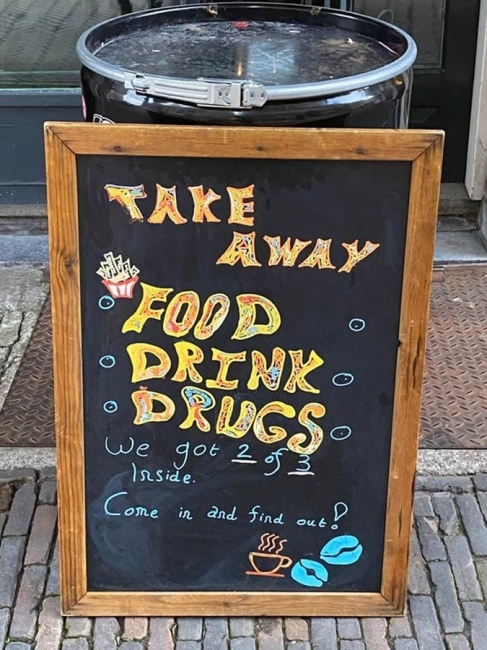 TAKE
AWAY
FOOD
DRINK
DRUGS
We got 2 of 3
Inside.
Come in and find out!